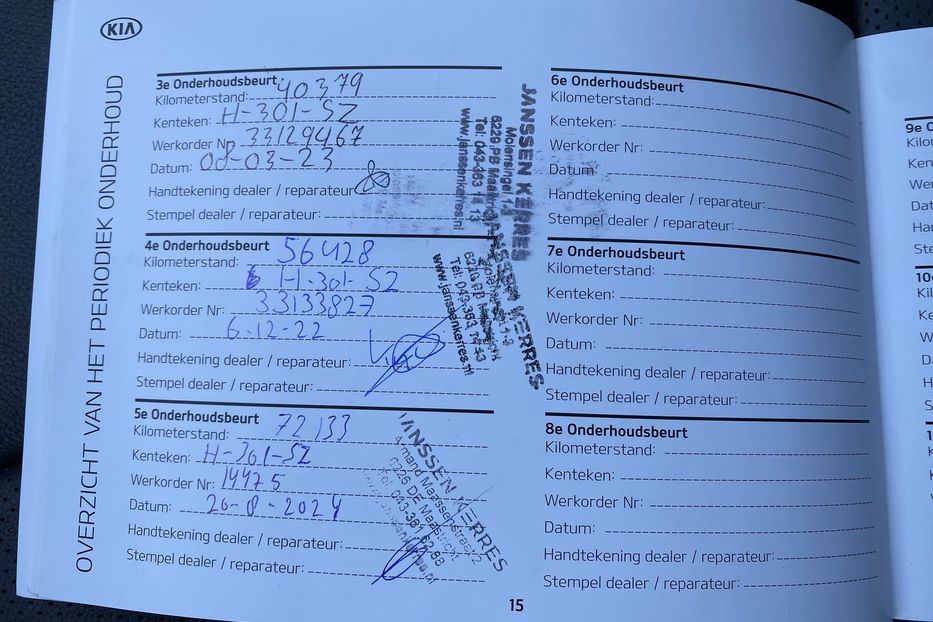 KIA
OVERZICHT VAN HET PERIODIEK ONDERHOUD
3e Onderhoudsbeurt
Kilometerstand: 40379
Kenteken: H-301-SZ
Werkorder Nr: 33129467
Datum: 08-03-23
Handtekening dealer / reparateur:
Stempel dealer / reparateur:
JANSSEN KERRES
Molensingel 1-3
6229 PB Maastricht
Tel: 043-363 14 13
www.janssenkerres.nl
4e Onderhoudsbeurt
Kilometerstand: 56428
Kenteken: H-301-SZ
Werkorder Nr: 33133827
Datum: 6-12-22
Handtekening dealer / reparateur:
Stempel dealer / reparateur:
JANSSEN KERRES
Molensingel 1-3
6229 PB Maastricht
Tel: 043-363 14 13
www.janssenkerres.nl
5e Onderhoudsbeurt
Kilometerstand: 72133
Kenteken: H-301-SZ
Werkorder Nr: 14475
Datum: 26-8-2024
Handtekening dealer / reparateur:
Stempel dealer / reparateur:
JANSSEN KERRES
Armand Maassenstraat 2
6226 DE Maastricht
Tel. 043-361 62 88
6e Onderhoudsbeurt
Kilometerstand:
Kenteken:
Werkorder Nr:
Datum:
Handtekening dealer / reparateur:
Stempel dealer / reparateur:
7e Onderhoudsbeurt
Kilometerstand:
Kenteken:
Werkorder Nr:
Datum:
Handtekening dealer / reparateur:
Stempel dealer / reparateur:
8e Onderhoudsbeurt
Kilometerstand:
Kenteken:
Werkorder Nr:
Datum:
Handtekening dealer / reparateur:
Stempel dealer / reparateur:
15
9e O